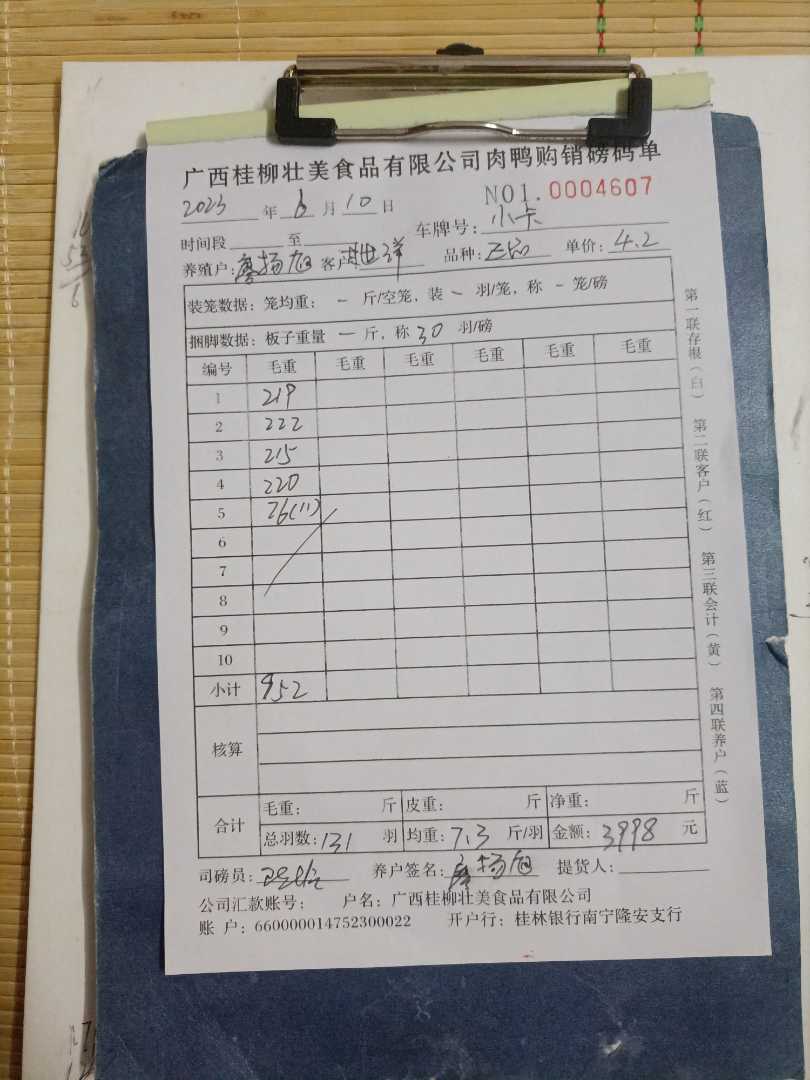 广西桂柳壮美食品有限公司肉鸭购销磅码单
2023年6月10日 NO1.0004607
时间段 至 车牌号：小卡
养殖户：廖扬旭 客户： 品种：正品 单价：4.2
装笼数据：笼均重：- 斤/空笼，装 - 羽/笼，称 - 笼/磅
捆脚数据：板子重量 - 斤，称 30 羽/磅
编号 毛重 毛重 毛重 毛重 毛重 毛重
1 219
2 222
3 215
4 220
5 76(11)
6
7
8
9
10
小计 952
核算
合计 毛重： 斤 皮重： 斤 净重： 斤
总羽数：131 羽 均重：7.3 斤/羽 金额：3998 元
司磅员： 养户签名：廖扬旭 提货人：
公司汇款账号： 户名：广西桂柳壮美食品有限公司
账 户：660000014752300022 开户行：桂林银行南宁隆安支行
第一联存根（白） 第二联客户（红） 第三联会计（黄） 第四联养户（蓝）